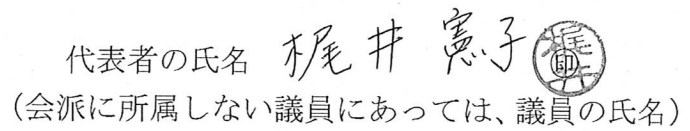 代表者の氏名 梶井 憲子 印 梶井
(会派に所属しない議員にあっては、議員の氏名)